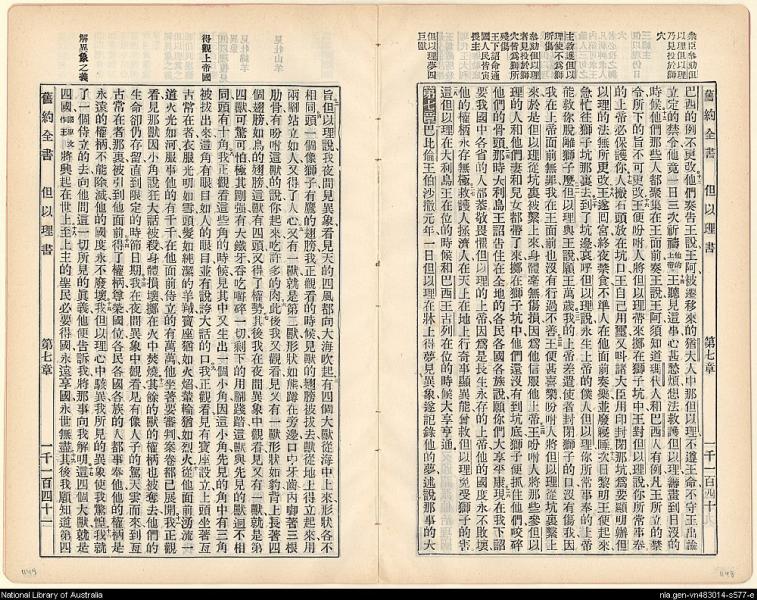 衆臣參劾但以理但以理乃見投於獅穴
舊約全書 但以理書 第七章
巴西的例不更改他們奏告王說王阿被遷移來的猶大人中那但以理不遵王命不守王出諭
立定的禁令他竟一日三次祈禱王聽見這事心甚愁煩想法救護但以理籌畫到日沒的
時候他們那些人都聚集在王面前奏王說王阿須知道瑪代人和巴西人有例凡王所立的禁
令所下的旨不可更改王便吩咐人將但以理帶來擲在獅子坑中王對但以理說你所常事奉
的上帝必保護你人搬石頭放在坑口王自己用璽又叫諸大臣用印封閉那坑爲要顯明辦但
以理的法無所更改王遂回宮終夜禁食不準人在他面前奏樂並廢寢睡次日黎明王便起來
急忙往獅子坑那裏去到了坑邊哀呼但以理說永生上帝的僕人但以理你所常事奉的上帝
能救你脫離獅子麼但以理與王說願王萬歲我的上帝差遣使者封閉獅子的口沒有傷我因
我在上帝面前無罪我在王面前也沒有行過不善王便甚喜樂吩咐人將但以理從坑裏繫上
來於是但以理從坑裏被繫上來身體毫無傷損因爲他信服他上帝王吩咐人將那些參但以
理的人和他們妻和兒女都帶了來擲在獅子坑中他們還沒有到坑底獅子便抓住他們咬碎
他們的骨頭那時大利烏王詔告住在全地的各民各國各族說願你們大享平康現在我下詔
要我國中各省的人都當敬畏但以理的上帝因爲是長生永存的上帝他的國度永不敗壞
他的權柄永存無極救護人拯濟人在天上在地上行奇事顯異能曾救但以理免受獅子的害
這但以理在大利烏王在位的時候和巴西王古列在位的時候大享亨通
第七章 巴比倫王伯沙撒元年一日但以理在牀上得夢見異象遂記錄他的夢述說那事的大
旨但以理說我夜間見異象看見天的四風都向大海吹起有四個大獸從海中上來形狀各不
相同頭一個像獅子有鷹的翅膀我正觀看的時候見獸的翅膀被拔去獸從地上得立起來用
兩腳站立如人又得了人心又有一獸就是第三獸形狀如熊蹲在旁邊口中牙齒內啣著三根
肋骨有吩咐這獸的說你起來吃許多的肉此後我又觀看見又有一獸形狀如豹背上長著四
個翅膀如鳥的翅膀這獸有四頭又得了權勢其後我在夜間異象中觀看見又有一獸就是第
四獸可驚可怕極其剛強有大鐵牙吞吃嚼碎一切剩下的用腳踐踏這獸與先見的獸迥不相
同頭有十角我正觀看這些角的時候見其中又生出一個小角因這小角先見的角中有三角
被拔出來這角有眼目如人的眼目並有說誇大話的口我正觀看見有寶座設立上頭坐著亙
古常在者衣服光明如雪頭髮如純潔的羊羢寶座猶如火焰輦輪猶如烈火從他面前湧流一
道火光如河服事他的有千千在他面前侍立的有萬萬他坐著要審判案卷都已展開我正觀
看見那獸因小角說狂大話被殺身體損壞擲在火中焚燒其餘的獸的權柄也被奪去他們的
生命卻仍存留直到限定的時節日期我在夜間異象中觀看見有像人子的駕天雲而來到亙
古常在者那裏被引到他面前得了權柄尊榮國位各民各國各族的人都事奉他他的權柄是
永遠的權柄不能除滅他的國度永不廢壞我但以理心中駭異我所見的異象使我驚惶我就
了一個侍立的去向他問這一切所見的眞義他便告訴我將那事向我解明這四個大獸就是
四國將興起在世上至上主的聖民必要得國永遠享國永世無盡其後我願知道第四
得觀上帝國
解異象之義
舊約全書 但以理書 第七章
National Library of Australia
nla.gen-vn483014-s577-e